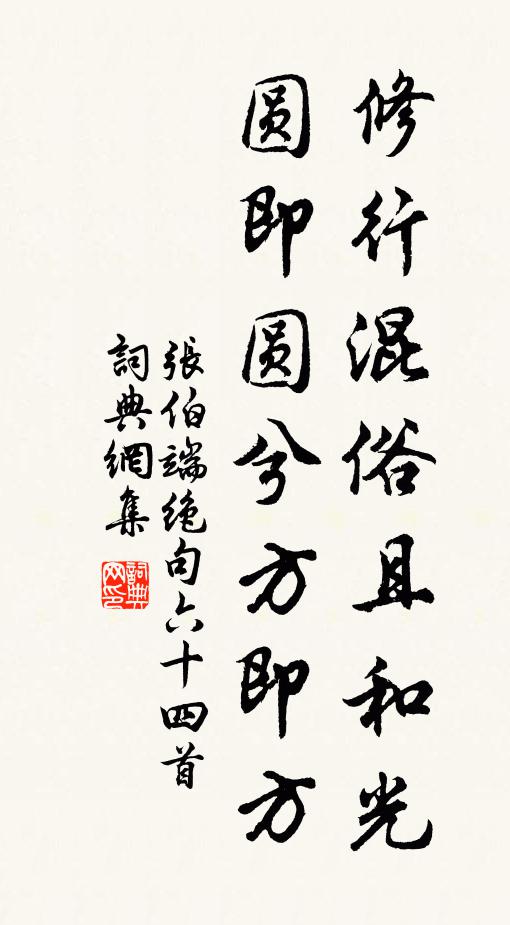 修行混俗且和光
圆即圆兮方即方
張伯端绝句六十四首
詞典網集
詞典网印